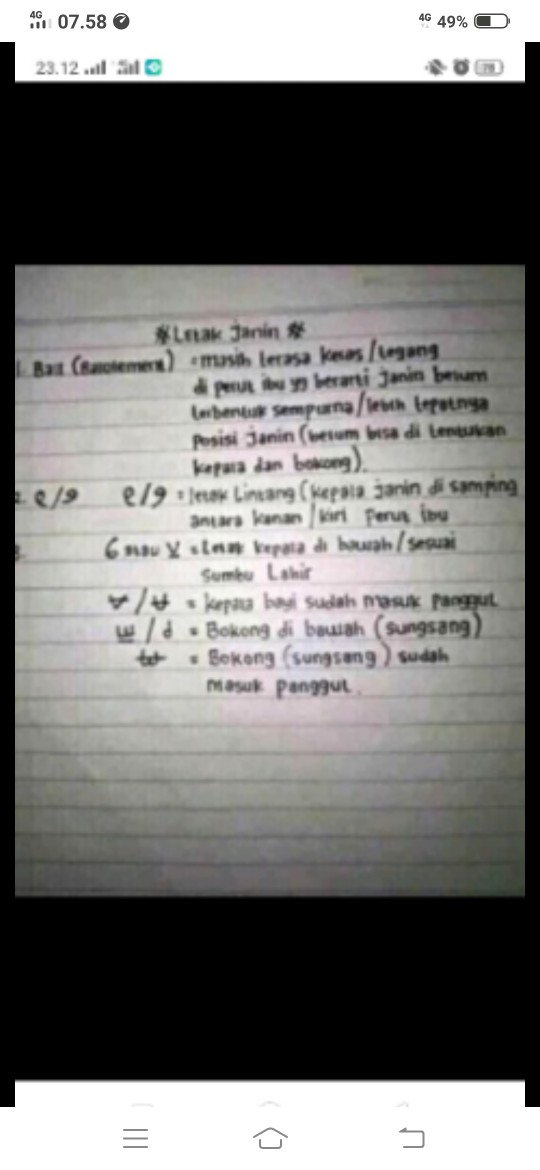 4G 07.58 4G 49%
23.12
*Letak Janin*
1. Ball (Ballotement) = masih terasa keras/tegang
di perut ibu yg berarti Janin belum
terbentuk sempurna/lebih tepatnya
Posisi Janin (belum bisa di tentukan
kepala dan bokong).
2. e/9 e/9 = letak Lintang (kepala janin di samping
antara kanan/kiri Perut ibu
3. 6 atau V = Letak kepala di bawah/sesuai
Sumbu Lahir
= kepala bayi sudah masuk panggul
= Bokong di bawah (sungsang)
= Bokong (sungsang) sudah
masuk panggul.